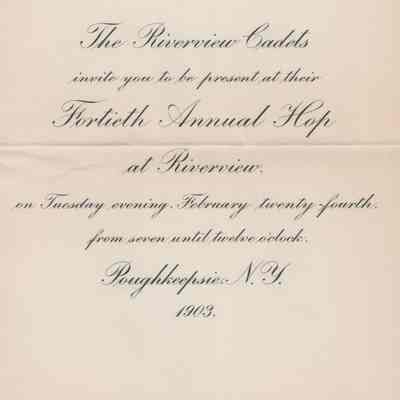 The Riverview Cadets
invite you to be present at their
Fortieth Annual Hop
at Riverview,
on Tuesday evening, February twenty-fourth,
from seven until twelve o'clock.
Poughkeepsie, N.Y.
1903.